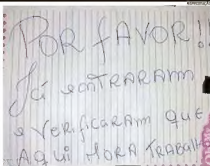 POR FAVOR!!
Já entraram
e verificaram que
Aqui mora trabalh